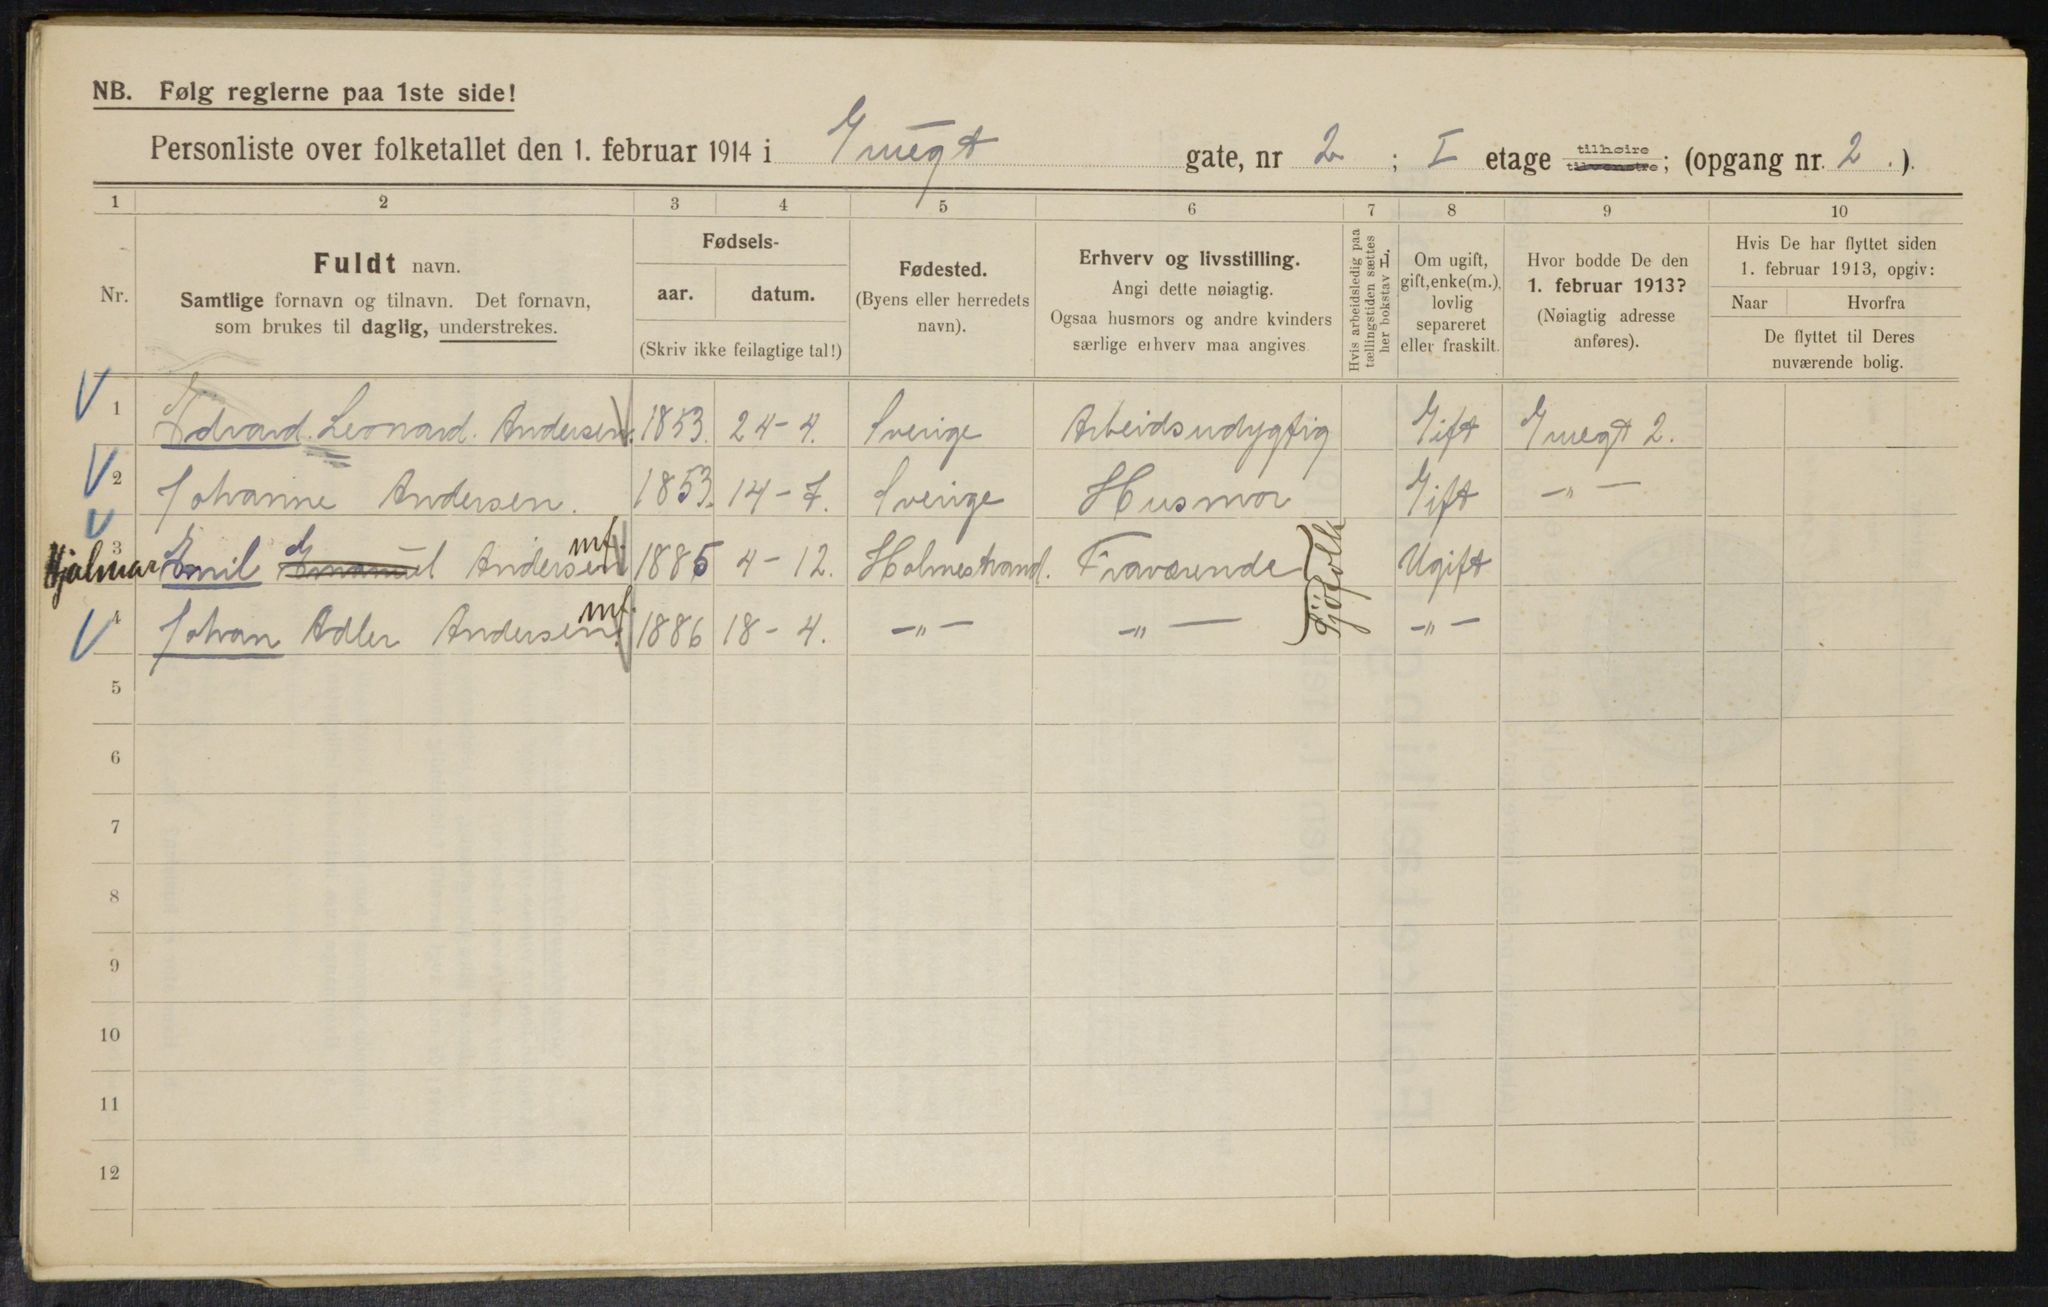 NB. Følg reglerne paa 1ste side!
Personliste over folketallet den 1. februar 1914 i Gruegt gate, nr 2 ; I etage tilhøire tilvenstre; (opgang nr. 2 ).
1 2 3 4 5 6 7 8 9 10
Nr.
Fuldt navn.
Samtlige fornavn og tilnavn. Det fornavn,
som brukes til daglig, understrekes.
Fødsels-
aar. datum.
(Skriv ikke feilagtige tal!)
Fødested.
(Byens eller herredets
navn).
Erhverv og livsstilling.
Angi dette nøiagtig.
Ogsaa husmors og andre kvinders
særlige erhverv maa angives.
Hvis arbeidsledig paa
tællingstiden sættes
her bokstav L.
Om ugift,
gift, enke(m.),
lovlig
separeret
eller fraskilt.
Hvor bodde De den
1. februar 1913?
(Nøiagtig adresse
anføres).
Hvis De har flyttet siden
1. februar 1913, opgiv:
Naar Hvorfra
De flyttet til Deres
nuværende bolig.
1 Edvard Leonard. Andersen. 1853. 24-4. Sverige Arbeidsudygtig Gift Gruegt 2.
2 Johanne Andersen. 1853. 14-7. Sverige Husmor Gift -"-
3 Hjalmar Emil Emanuel Andersen mf. 1885 4-12. Holmestrand. Fraværende Sjøfolk Ugift
4 Johan Adler Andersen mf. 1886 18-4. -"- -"- -"-
5
6
7
8
9
10
11
12